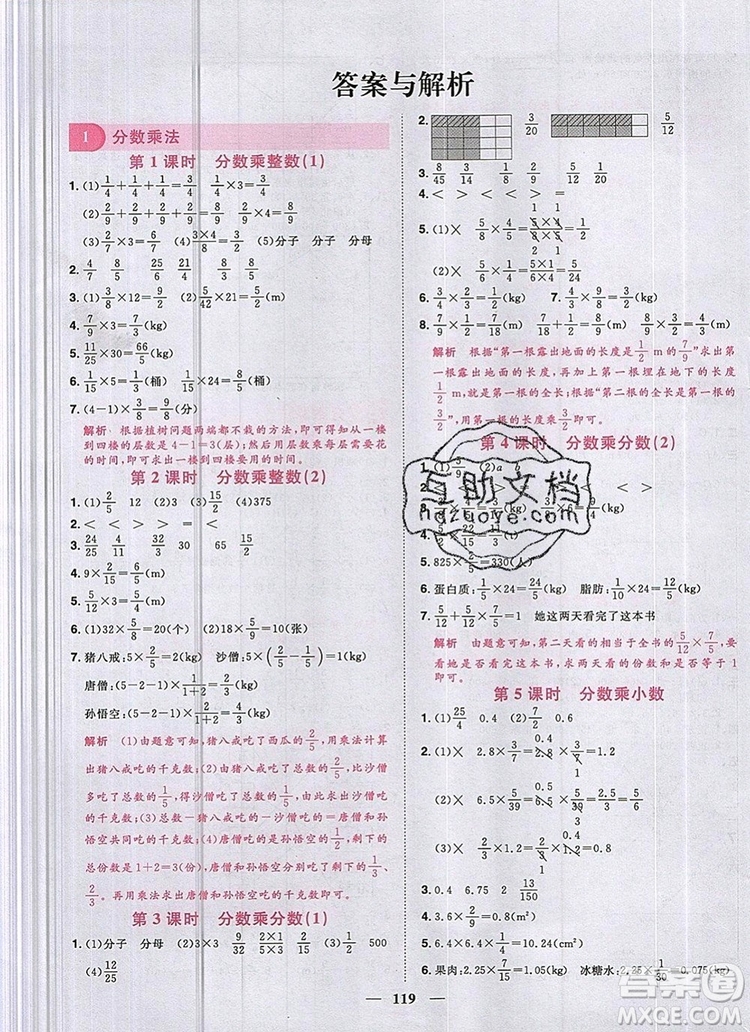 答案与解析
1 分数乘法
第1课时 分数乘整数(1)
1. (1) 1/4 + 1/4 + 1/4 1/4 × 3 = 3/4
(2) 2/9 + 2/9 + 2/9 + 2/9 2/9 × 4 = 8/9
(3) 2/7 × 3 = 6/7 (4) 3×4/8 = 3/2 (5)分子 分子 分母
2. 4/7 5/8
3. (1) 3/8 × 12 = 9/2 (kg) (2) 5/42 × 21 = 5/2 (m)
4. 7/9 × 3 = 7/3 (kg)
5. 11/25 × 30 = 66/5 (kg)
6. 1/15 × 5 = 1/3 (桶) 1/15 × 8 = 8/15 (桶)
解析 根据植树问题两端都不栽的方法,从一楼
到四楼的层数是4-1=3(层),用层数乘每层需要花
的时间,即可求出从一楼到四楼的时间。
第2课时 分数乘整数(2)
3. 24/25 4/11 15/2 3/4 65 15/2
5. 5/12 × 3 = 5/4 (m)
6. (1) 32 × 5/8 = 20(个) (2) 18 × 5/9 = 10(张)
7. 猪八戒: 5 × 2/5 = 2(kg) 沙僧: 5 × 1/5 = 1(kg)
唐僧: (5-2-1) × 1/1+2 = 2/3 (kg)
孙悟空: (5-2-1) × 2/1+2 = 4/3 (kg)
解析 (1)由题意可知,猪八戒吃了西瓜的2/5,用乘法计算
出猪八戒吃的千克数;(2)由猪八戒吃的千克数,比沙僧
多吃了总数的1/5可知,沙僧吃了总数的1/5,用乘法求出
沙僧吃的千克数;(3)总数-沙僧吃的-猪八戒吃的=唐僧和
孙悟空共同吃的千克数;(4)唐僧吃的是孙悟空的1/2,剩下的
总份数是1+2=3(份),唐僧和孙悟空分别吃了剩下的1/3、
2/3。再用乘法求出唐僧和孙悟空吃的千克数即可。
第3课时 分数乘分数(1)
1. (1)分子 分母 (2) 3/4 2/9 2×1/3×5 2/15 (3) 1/2 500
(4) 12/25
2. 3/20 5/12
3. 8/45 3/14 2/9 1/6
4. < < > = >
5. (1)× 5/8 × 4/5 = 5×4/8×5 = 1/2
(2)× 5/6 × 1/4 = 5×1/6×4 = 5/24
6. 3/4 × 2/3 = 1/2 (kg)
8. 1/2 × 7/9 = 7/18 (m) 7/18 + 1/2 = 8/9 (m)
解析 根据“第一根露出地面的长度是1/2 m的7/9”求出第
一根露出地面的长度,再加上第一根埋在地下的长度
1/2 m,就是第一根的全长;根据“第二根的全长是第一根的
2/3”,用第一根的全长乘2/3即可。
第4课时 分数乘分数(2)
5. 825 × 2/5 = 330(人)
6. 蛋白质: 1/5 × 24 = 24/5 (g) 脂肪: 1/10 × 24 = 12/5 (g)
7. 5/12 + 5/12 × 7/5 = 1 她这两天看完了这本书
解析 由题意可知,第二天看的相当于全书的5/12×7/5,要
看她是否看完了这本书,就看她两天看的份数和是否等于1
即可。
第5课时 分数乘小数
1. (1) 25/4 0.4 (2) 7/2 0.6
2. (1)× 2.8 × 3/7 = 2.8 × 3/7 = 1.2
(2)× 6.5 × 5/39 = 6.5 × 5/39 = 5/6
(3)× 4.5 × 2/15 = 4.5 × 2/15 = 0.6
3. 0.4 6.75 2 13/150
4. 1.62 × 2/9 = 0.36(kg)
5. 6.4 × 6.4 × 1/4 = 10.24(cm²)
6. 果肉: 2.25 × 7/15 = 1.05(kg) 冰糖水: 2.25 × 1/30 = 0.075(kg)
119
互助文档
hdzuoye.com
答案圈
MXQE.COM